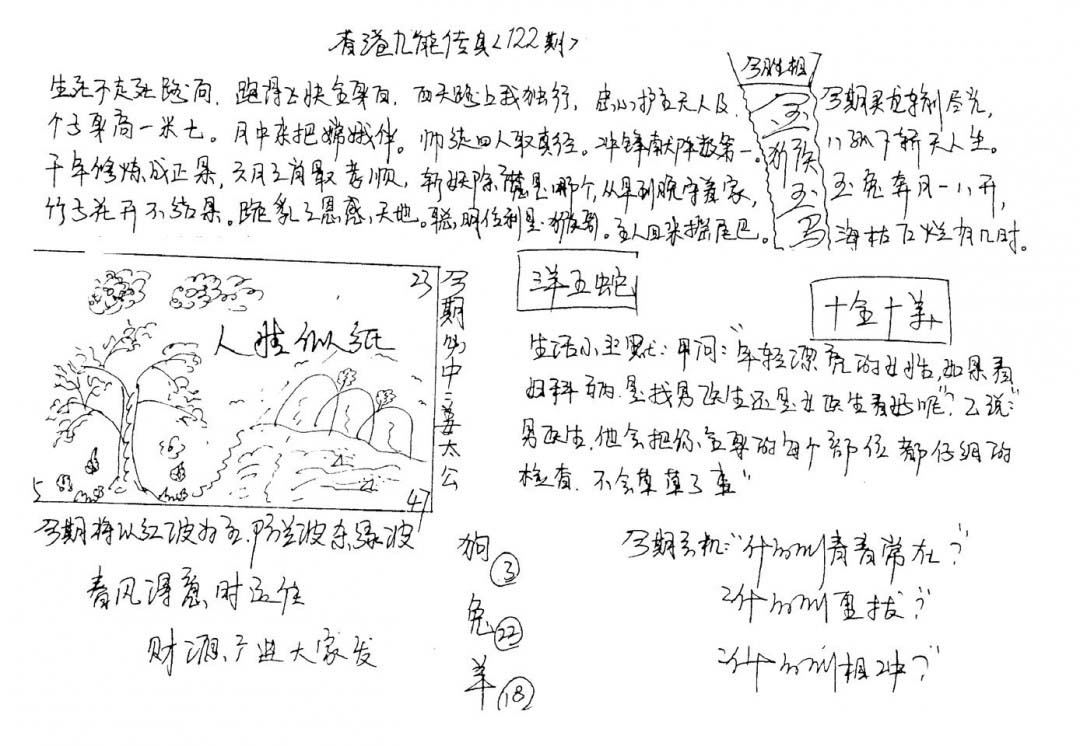 香港九能传真<122期>
生死不走死路间.跑得飞快全身白.西天路上我独行,忠心护主天人及.
个子身高一米七。月中来把嫦娥伴。师徒四人取真经。冲锋献阵数第一。
千年修炼成正果,六月三肖最孝顺,斩妖除魔是哪个,从早到晚守着家,
竹子花开不结果。跪乳之恩感天地。聪明伶利是。主人回来摇尾巴。
今胜相
金
猴
玉
马
今期
下斩天人生。
玉兔奔月一八开,
海枯石烂有几时。
23
人生似纸
5
47
今期必中:姜太公
洋五蛇
十金十羊
生活小幽默:甲问:"年轻漂亮的女性,如果看
妇科病.是找男医生还是女医生看好呢"?乙说:"
男医生.他会把你全身的每个部位都仔细的
检查.不会草草了事"
今期将以红波为主.防兰波杀绿波
春风得意时运佳
财源广进大家发
狗③
兔㉒
羊⑱
今期玄机:"什么叫青春常在?"
2什么叫?
2什么叫相冲?"